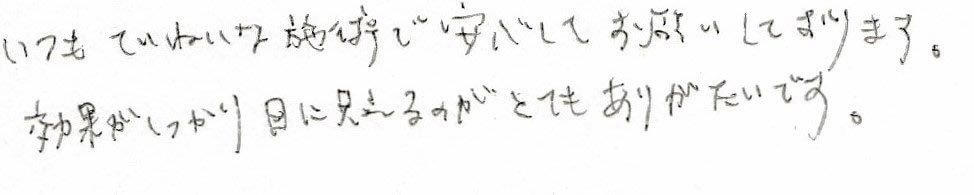 いつも ていねいな 施術で 安心して お願いしております。
効果がしっかり 目に見えるのが とても ありがたいです。